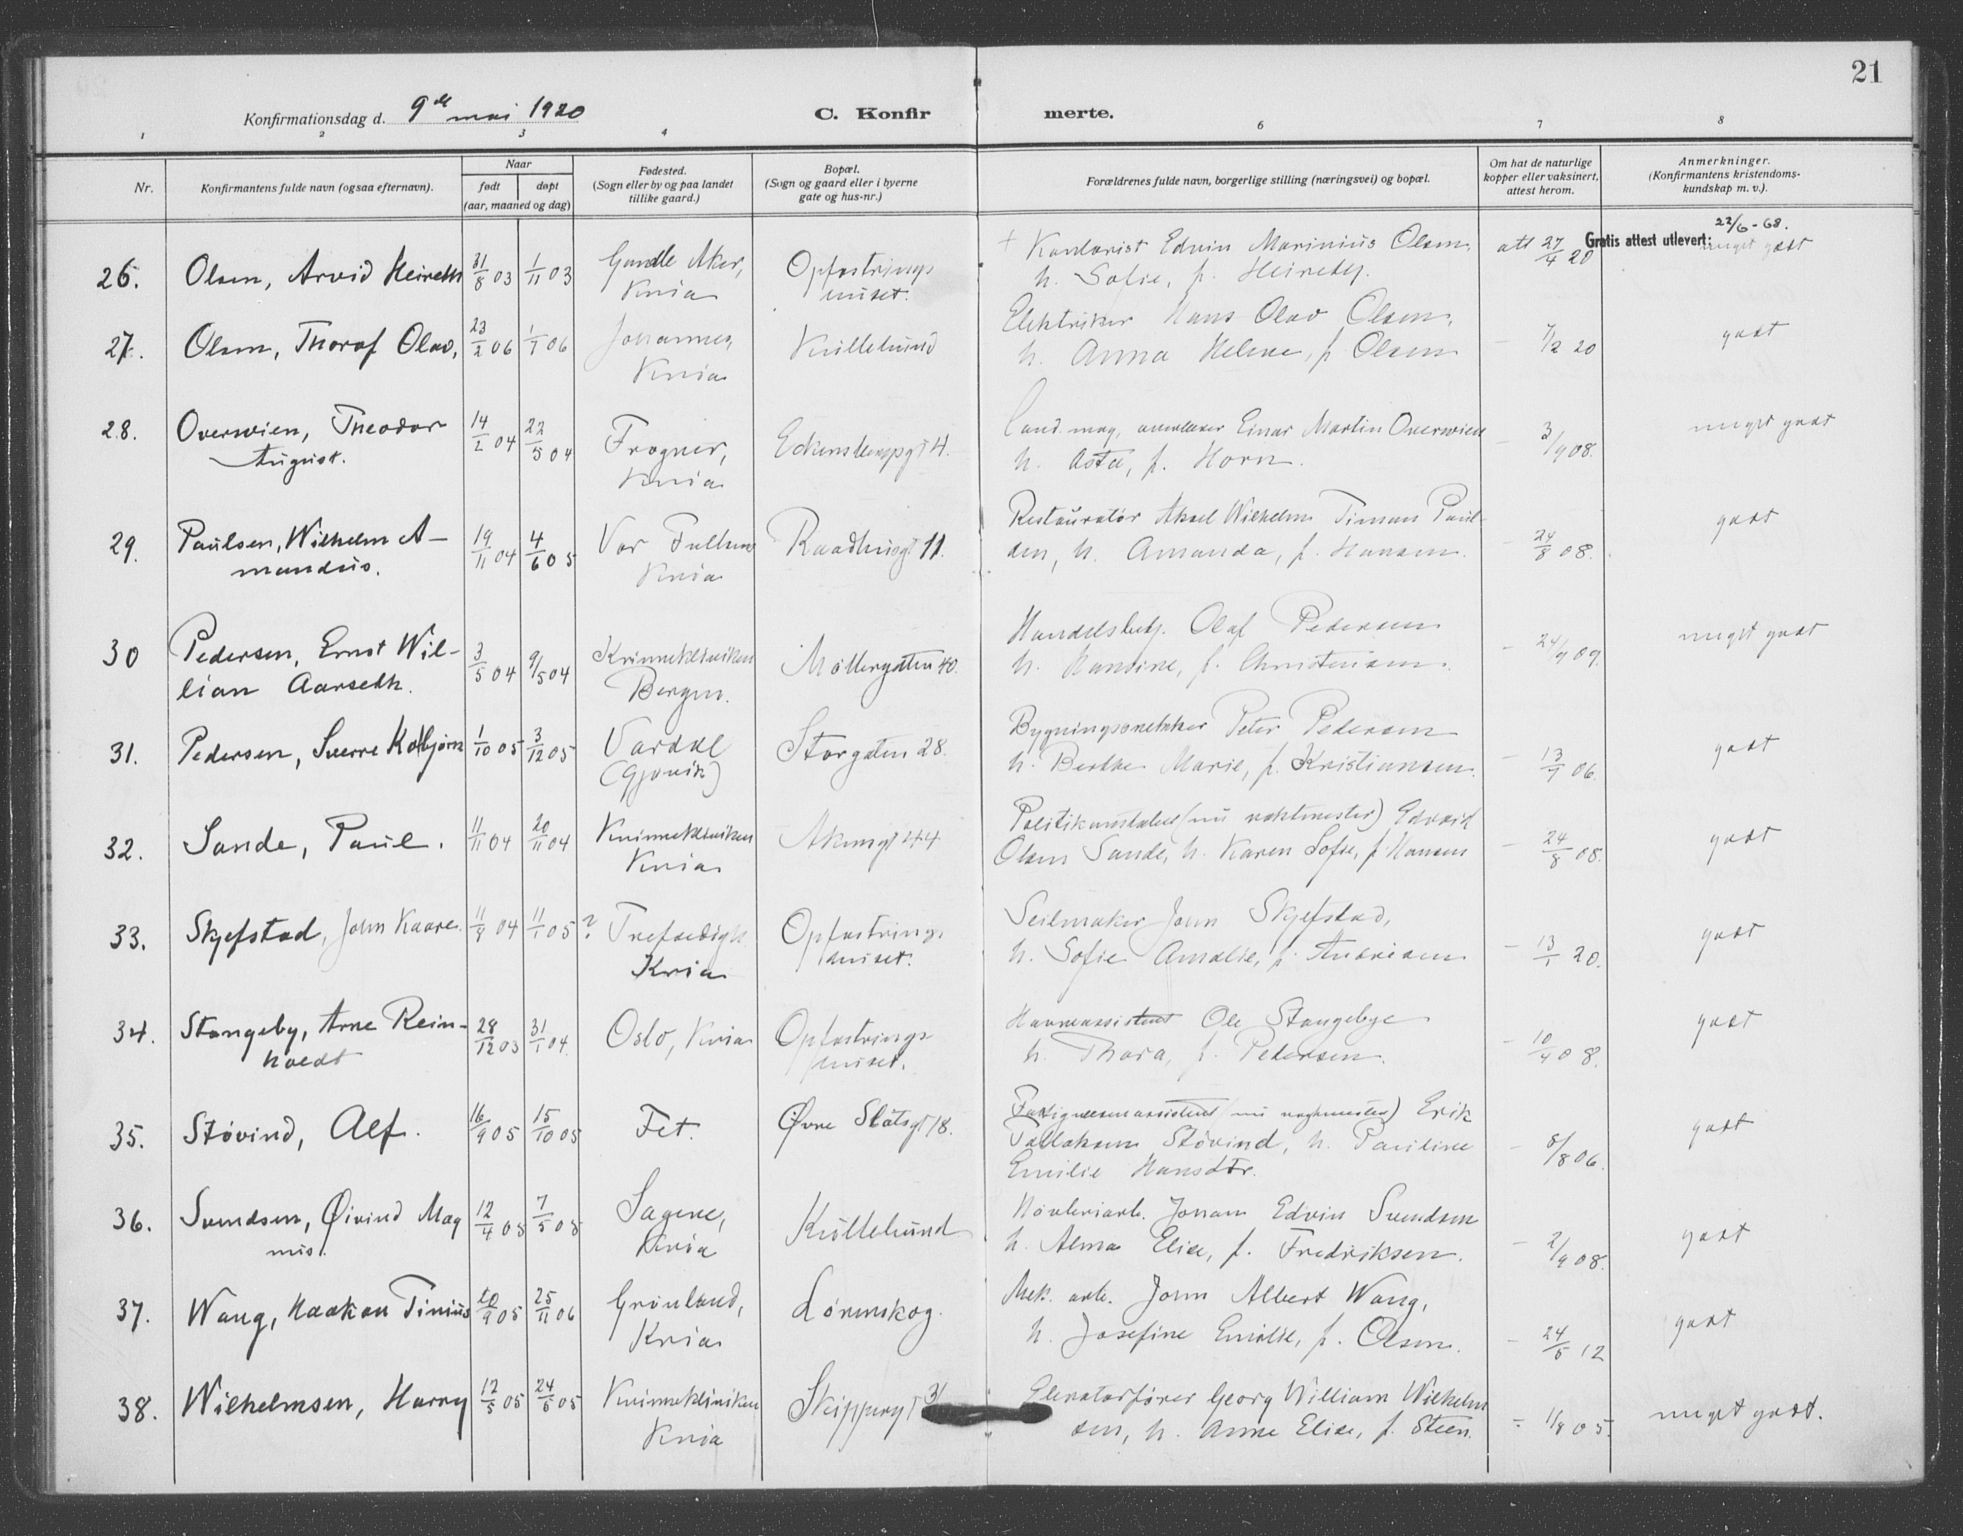 21
Konfirmationsdag d. 9de mai 1920 C. Konfirmerte.
1 2 3 4 6 7 8
Nr.
Konfirmantens fulde navn (ogsaa efternavn).
Naar
født
døpt
(aar, maaned og dag)
Fødested.
(Sogn eller by og paa landet
tillike gaard.)
Bopæl.
(Sogn og gaard eller i byerne
gate og hus-nr.)
Forældrenes fulde navn, borgerlige stilling (næringsvei) og bopæl.
Om hat de naturlige
kopper eller vaksinert,
attest herom.
Anmerkninger.
(Konfirmantens kristendoms-
kundskap m. v.).
22/6-68.
Gratis attest utlevert:
26. Olsen, Arvid 31/8 03 1/11 03 Gamle Aker, Opfostrings Kontorist Edvin Marinius Olsen, att 27/4 20 meget godt
Kria huset. h. Sofie, f.
27. Olsen, Thoraf Olav, 23/2 06 1/1 06 Johannes, Elektriker Hans Olav Olsen, 7/2 20 godt
Kria h. Anna Helene, f. Olsen
28. Overwien, Theodor 14/2 04 22/5 04 Frogner, 4. Cand. mag, Einar Martin Overwien - 3/9 08. meget godt
August. Kria h. Asta, f. Horn.
29. Paulsen, Wilhelm A- 19/11 04 4/6 05 Vor Raadhusgt 11. Restauratør Aksel Wilhelm Timan Paul- - 24/8 08. godt
mandus. Kria sen, h. Amanda, f. Hansen.
30 Pedersen, Ernst Wil- 3/5 04 9/5 04 Kvinneklinikken Møllergaten 40. Olaf Pedersen - 24/9 09. meget godt
lian Aarseth. Bergen. h. f. Christensen.
31. Pedersen, Sverre Kolbjørn 1/10 05 3/12 05 Vardal Storgaten 28. Peter Pedersen - 13/9 06. godt
(Gjøvik) h. Berthe Marie, f. Kristiansen.
32. Sande, Paul. 11/11 04 20/11 04 Kvinneklinikken Akersgt 44 (nu vaktmester) Edvard - 24/8 08. godt
Kria Olsen Sande, h. Karen Sofie, f. Hansen
33. Skjefstad, John Kaare. 11/9 04 11/1 05 ? Opfostrings Seilmaker John Skjefstad, - 13/1 20. godt
Kria huset. h. Sofie Amalie, f. Andresen
34. Stangeby, Arne Rein- 28/12 03 31/1 04. Oslo, Kria Opfostrings Havneassistent Ole Stangebye - 10/4 08. godt
holdt huset. h. Thora, f. Pedersen.
35. Støvind, Alf. 16/9 05 15/10 05 Fet. Øvre Slotsgt 18. Erik - 8/8 06. godt
Støvind, h. Pauline
Emilie Hansdtr.
36. Svendsen, Øivind Mag 12/4 05 7/5 05 Sagene, Høvleriarb. Johan Edvin Svendsen - 2/9 08. godt
nus. Kria h. Alma Elise, f. Fredriksen.
37. Wang, Haakon Tinius 20/9 05 25/11 06 Grønland, Lørenskog. Mek. arb. John Albert Wang, - 24/5 12 godt
Kria h. Josefine Emilie, f. Olsen.
38. Wilhelmsen, Harry 12/5 05 24/6 05 Kvinneklinikken Skippergt 31 Elevatorfører Georg William Wilhelm - 1/8 05 meget godt.
Kria sen, h. Anne Elise, f. Steen.